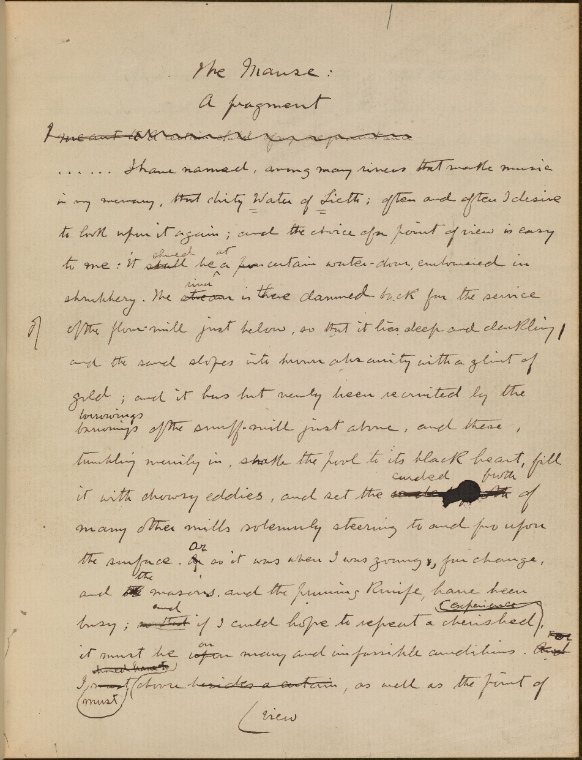 The Manse:
A fragment
I meant
...... I have named, among many rivers that make music
in my memory, that dirty Water of Lieth; often and often I desire
to look upon it again; and the choice of a point of view is easy
should at
to me: It shall be a certain water-door, embowered in
river
shrubbery. The stream is there dammed back for the service
of the flour-mill just below, so that it lies deep and darkling,
and the sand slopes into brown obscurity with a glint of
gold; and it has but newly been recruited by the
borrowings
borrowings of the snuff-mill just above, and these,
tumbling merrily in, shake the pool to its black heart, fill
curded froth
it with drowsy eddies, and set the of
many other mills solemnly steering to and fro upon
the surface. Or so it was when I was young; for change,
the
and masons, and the pruning Knife, have been
and experience
busy; if I could hope to repeat a cherished,
on
it must be upon many and impossible conditions.
I must choose besides a certain, as well as the point of
must
view